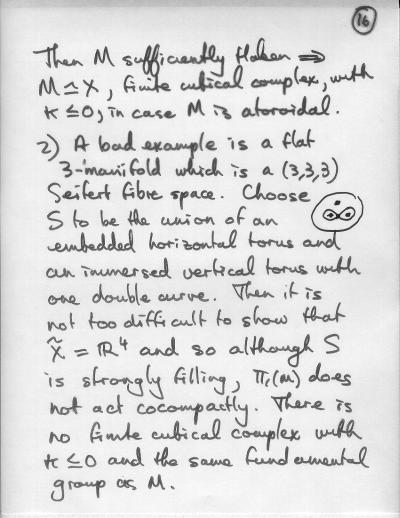 16
Then M sufficiently Haken ⇒
M ≃ X, finite cubical complex, with
K ≤ 0, in case M is atoroidal.
2) A bad example is a flat
3-manifold which is a (3,3,3)
Seifert fibre space. Choose
S to be the union of an
embedded horizontal torus and
an immersed vertical torus with
one double curve. Then it is
not too difficult to show that
X̃ = ℝ⁴ and so although S
is strongly filling, π₁(M) does
not act cocompactly. There is
no finite cubical complex with
K ≤ 0 and the same fundamental
group as M.